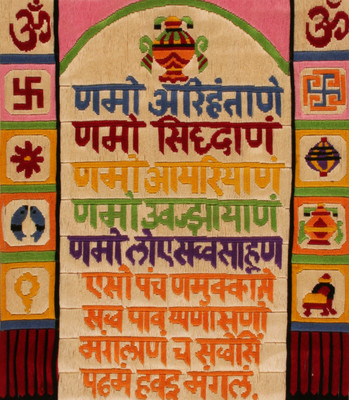 ॐ ॐ
णमो अरिहंताणे
णमो सिद्धाणं
णमो आयरियाणं
णमो उवज्झायाणं
णमो लोए सव्वसाहूण
एसो पंच णमुक्कारो
सव्व पाव प्पणासणो
मंगलाण च सव्वेसिं
पढमं हवइ मंगलं.